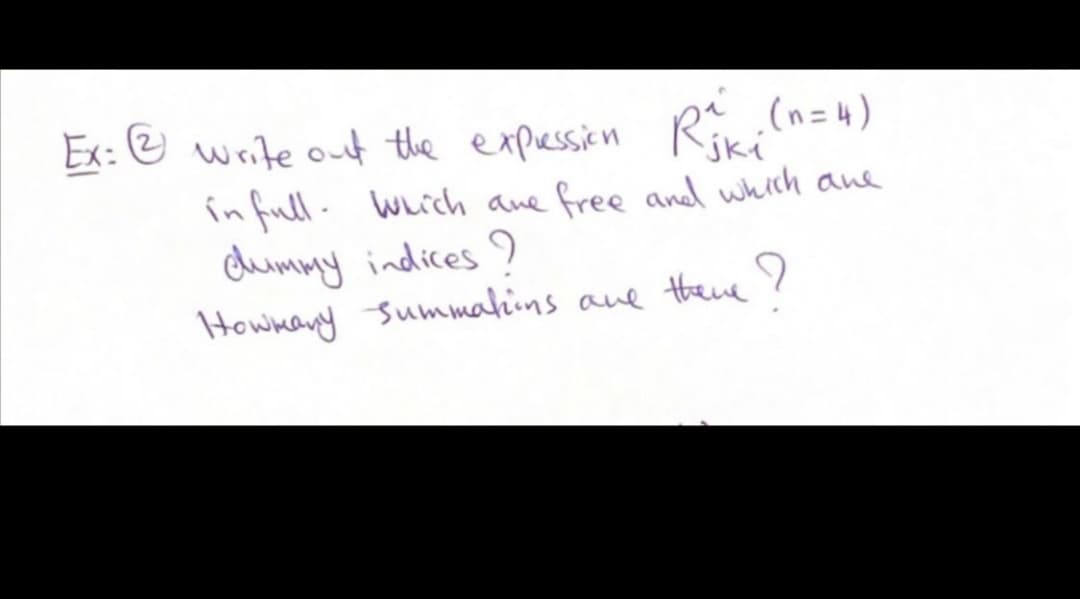 Ex: ② write out the expression R^i_{jki} (n=4)
in full. Which are free and which are
dummy indices?
Howmany summations are there?